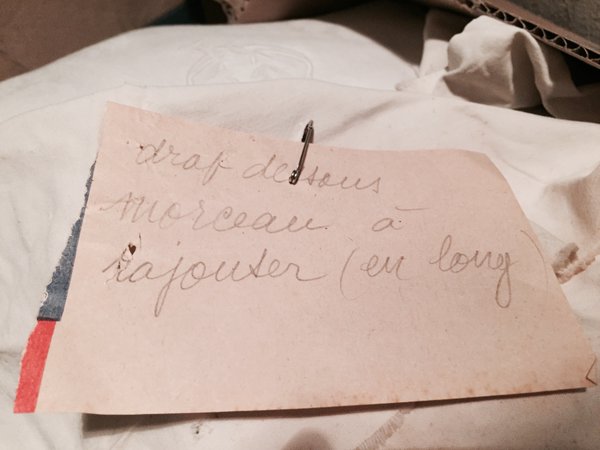 drap dessous
morceau à
rajouter (en long)